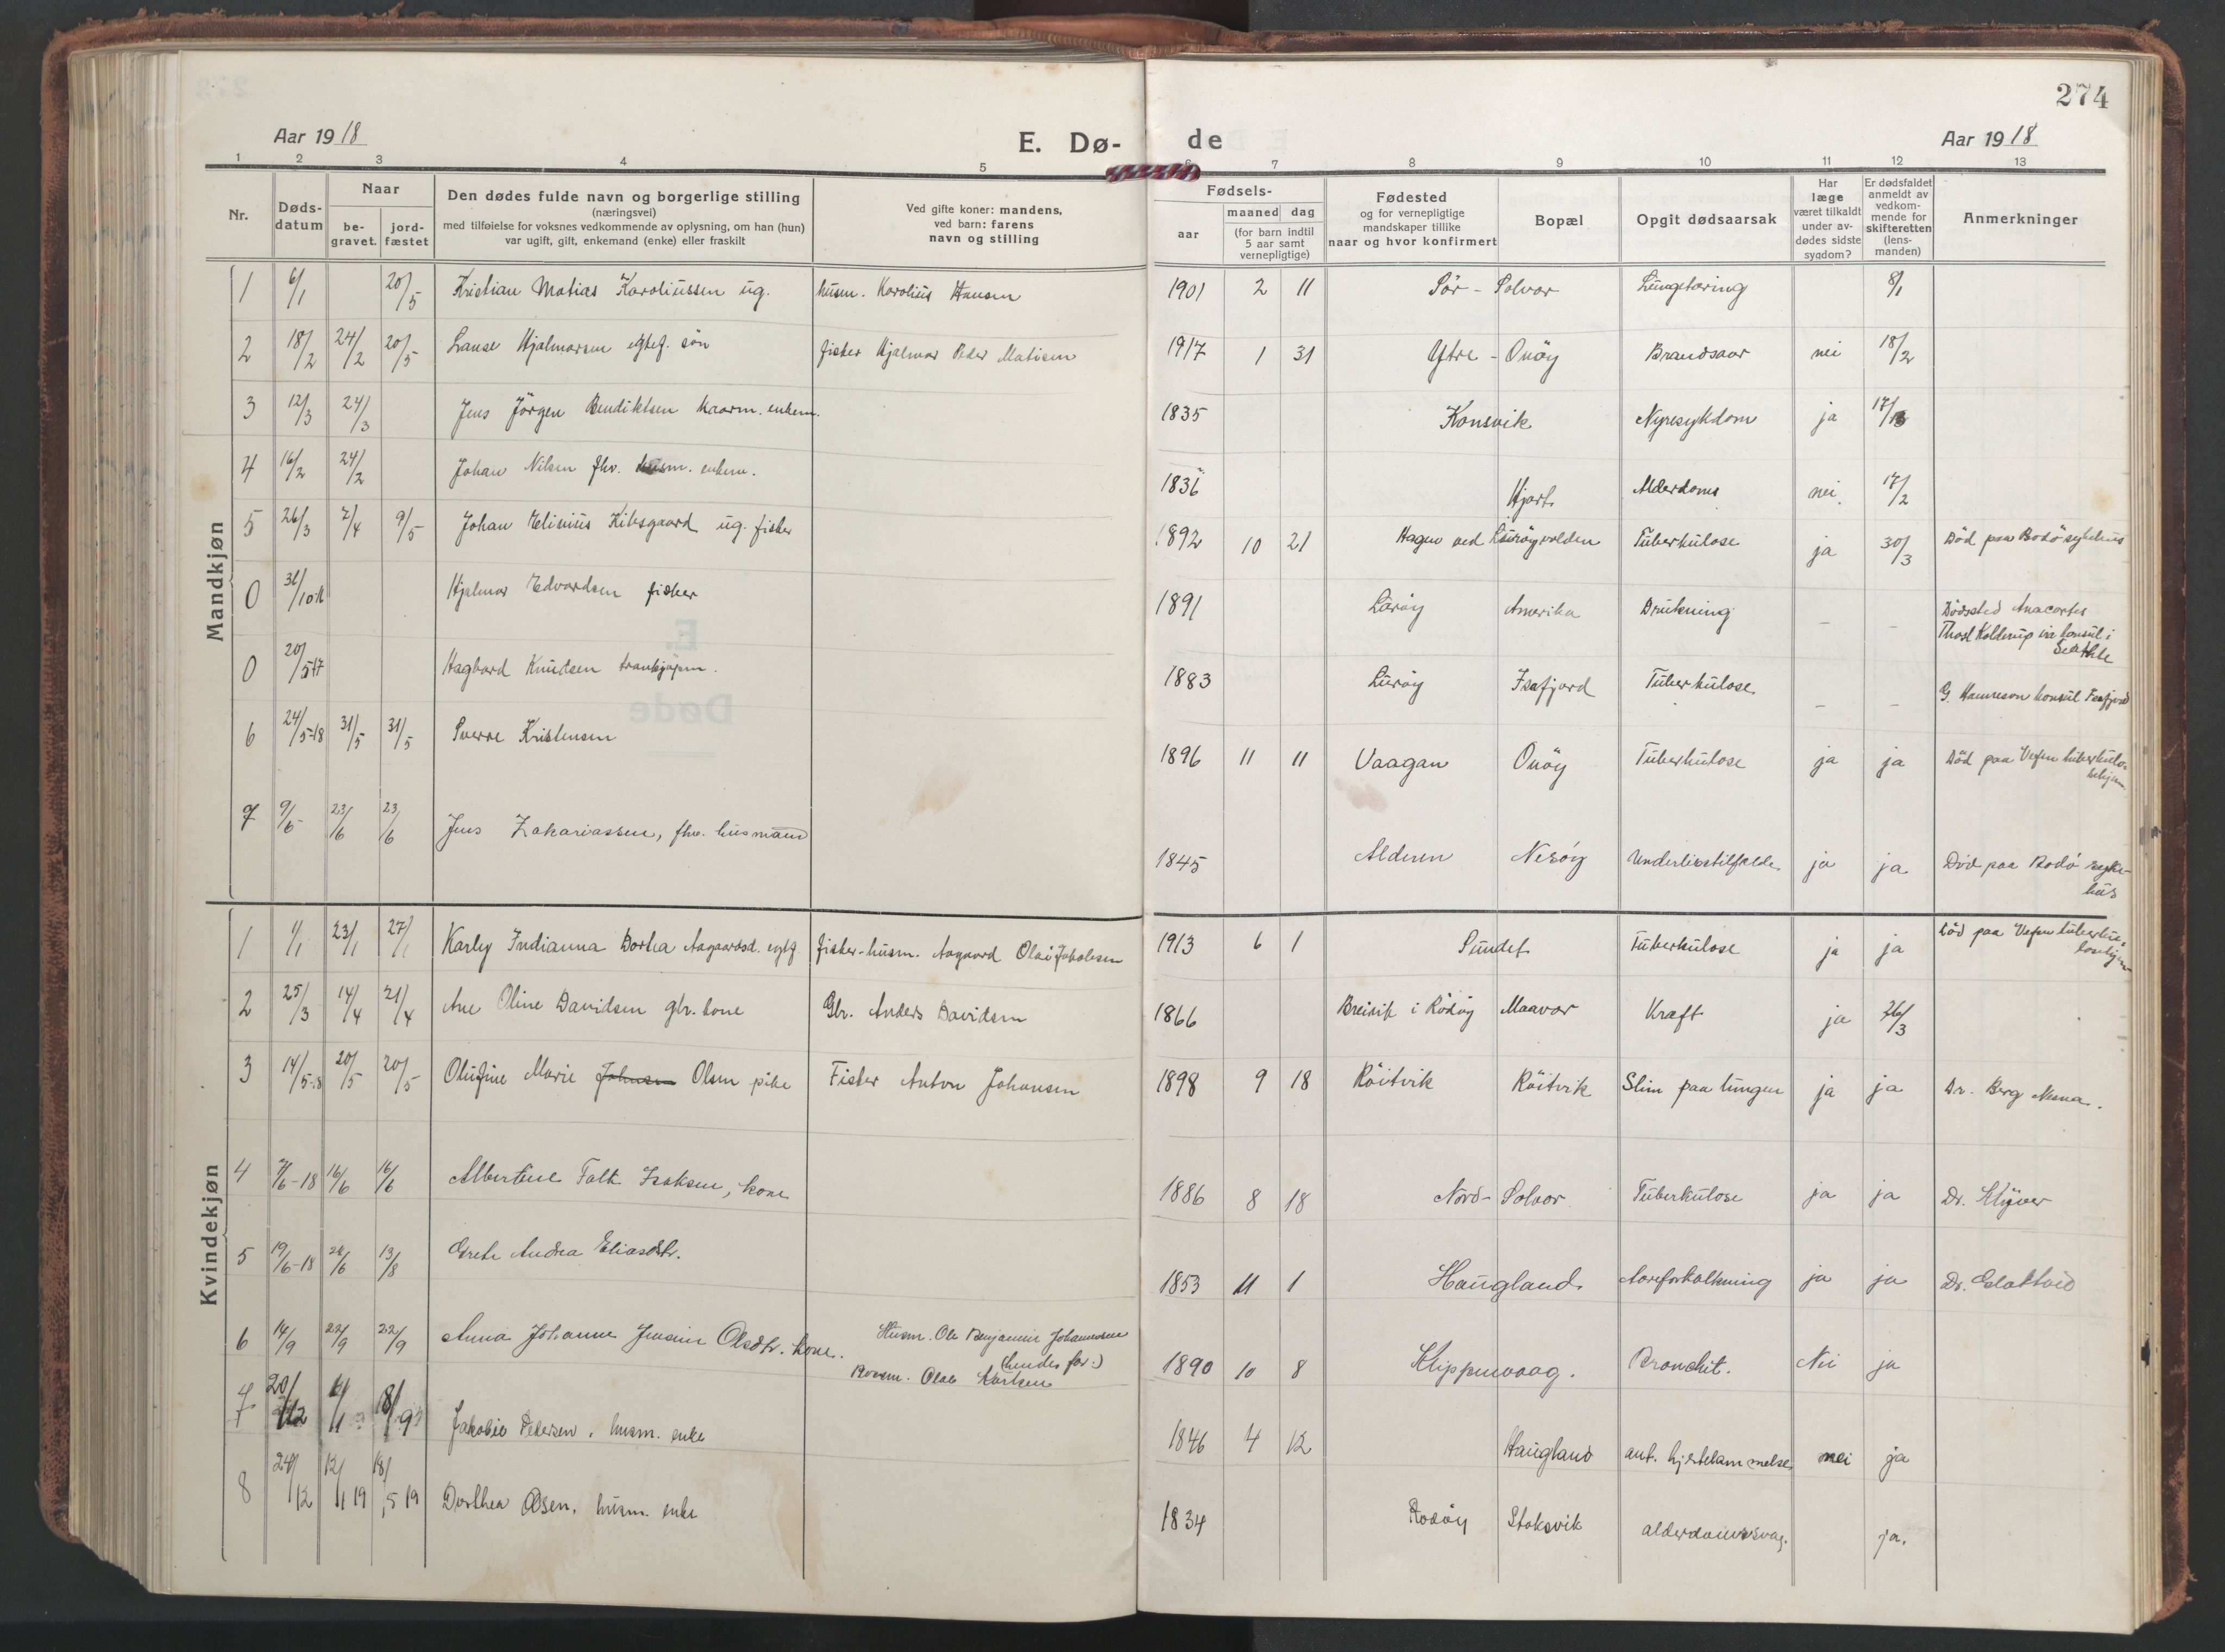 274
Aar 1918
E. Dø-
de
Aar 1918
1 2 3 4 5 6 7 8 9 10 11 12 13
Nr.
Døds-
datum
Naar
be-
gravet.
jord-
fæstet
Den dødes fulde navn og borgerlige stilling
(næringsvei)
med tilføielse for voksnes vedkommende av oplysning, om han (hun)
var ugift, gift, enkemand (enke) eller fraskilt
Ved gifte koner: mandens,
ved barn: farens
navn og stilling
Fødsels-
aar
maaned dag
(for barn indtil
5 aar samt
vernepligtige)
Fødested
og for vernepligtige
mandskaper tillike
naar og hvor konfirmert
Bopæl
Opgit dødsaarsak
Har
læge
været tilkaldt
under av-
dødes sidste
sygdom?
Er dødsfaldet
anmeldt av
vedkom-
mende for
skifteretten
(lens-
manden)
Anmerkninger
Mandkjøn
1 6/1 20/5 Kristian Matias Karoliussen ug. husm. Karolius Hansen 1901 2 11 Sör-Solvær Lungetæring 8/1
2 18/2 24/2 20/5 Hjalmarsen egtef. sön fisker Hjalmar Peder Matisen 1917 1 31 Ytre-Onöy Brandsaar nei 18/2
3 12/3 24/3 Jens Jörgen Bendiktsen kaarm. enkem. 1835 Konsvik Nyresykdom ja 17/3
4 16/2 24/2 Johan Nilsen fhv. husm. enkem. 1836 Hjart. Alderdoms nei. 17/2
5 26/3 7/4 9/5 Johan Elinius Kilsgaard ug. fisker 1892 10 21 Hagen ved Luröyvolden Tuberkulose ja 30/3 Död paa Bodö sykehus
0 31/10-16 Hjalmar Edvardsen fisker 1891 Luröy Amerika Drukning - - Dödssted Anacortes
Kolderup vicekonsul i
Seattle
0 20/5-17 Hagbard Knudsen 1883 Luröy Isafjord Tuberkulose - - G. konsul Isafjord
6 24/5-18 31/5 31/5 Sverre Kristensen 1896 11 11 Vaagan Onöy Tuberkulose ja ja Död paa Vefsn tuberkulo-
sehjem
7 9/6 23/6 23/6 Jens Zakariassen, fhv. husmand 1845 Alderen Nesöy Underlivstilfælde ja ja Död paa Bodö syke-
hus
Kvindekjøn
1 1/1 23/1 27/1 Karly Indianna Dortea Aagaardsd. egtf. fisker-husm. Aagaard Olai Jakobsen 1913 6 1 Sundet Tuberkulose ja ja Död paa Vefsn tuberku-
losehjem
2 25/3 14/4 21/4 Ane Oline Davidsen gbr. kone Gbr. Anders Davidsen 1866 Breivik i Rödöy Maavær Kræft ja 26/3
3 14/5-18 20/5 20/5 Olufine Marie Johnsen Olsen pike Fisker Anton Johansen 1898 9 18 Röitvik Röitvik Slim paa lungen ja ja Dr. Berg Nesna.
4 7/6-18 16/6 16/6 Albertine Falk Isaksen, kone 1886 8 18 Nord-Solvær Tuberkulose ja ja Dr. Klüver
5 19/6-18 26/6 13/8 Grete Andrea Eliasdtr. 1853 11 1 Haugland. Aareforkalkning ja ja Dr.
6 14/9 22/9 22/9 Anna Johanne Jensine Olsdtr. kone. Husm. Ole Benjamin Johannesen
(hendes far.)
Olav Karlsen 1890 10 8 Klippenvaag. Bronchit. Nei ja
7 20/12 6/1 18/5 19 Jakobie Pedersen, husm. enke 1846 4 12 Haugland ant. hjertelammelse nei ja
8 24/12 12/1 19 18/5 19 Dorthea Olsen, husm. enke 1834 Rödöy Stoksvik alderdomssvag. ja.